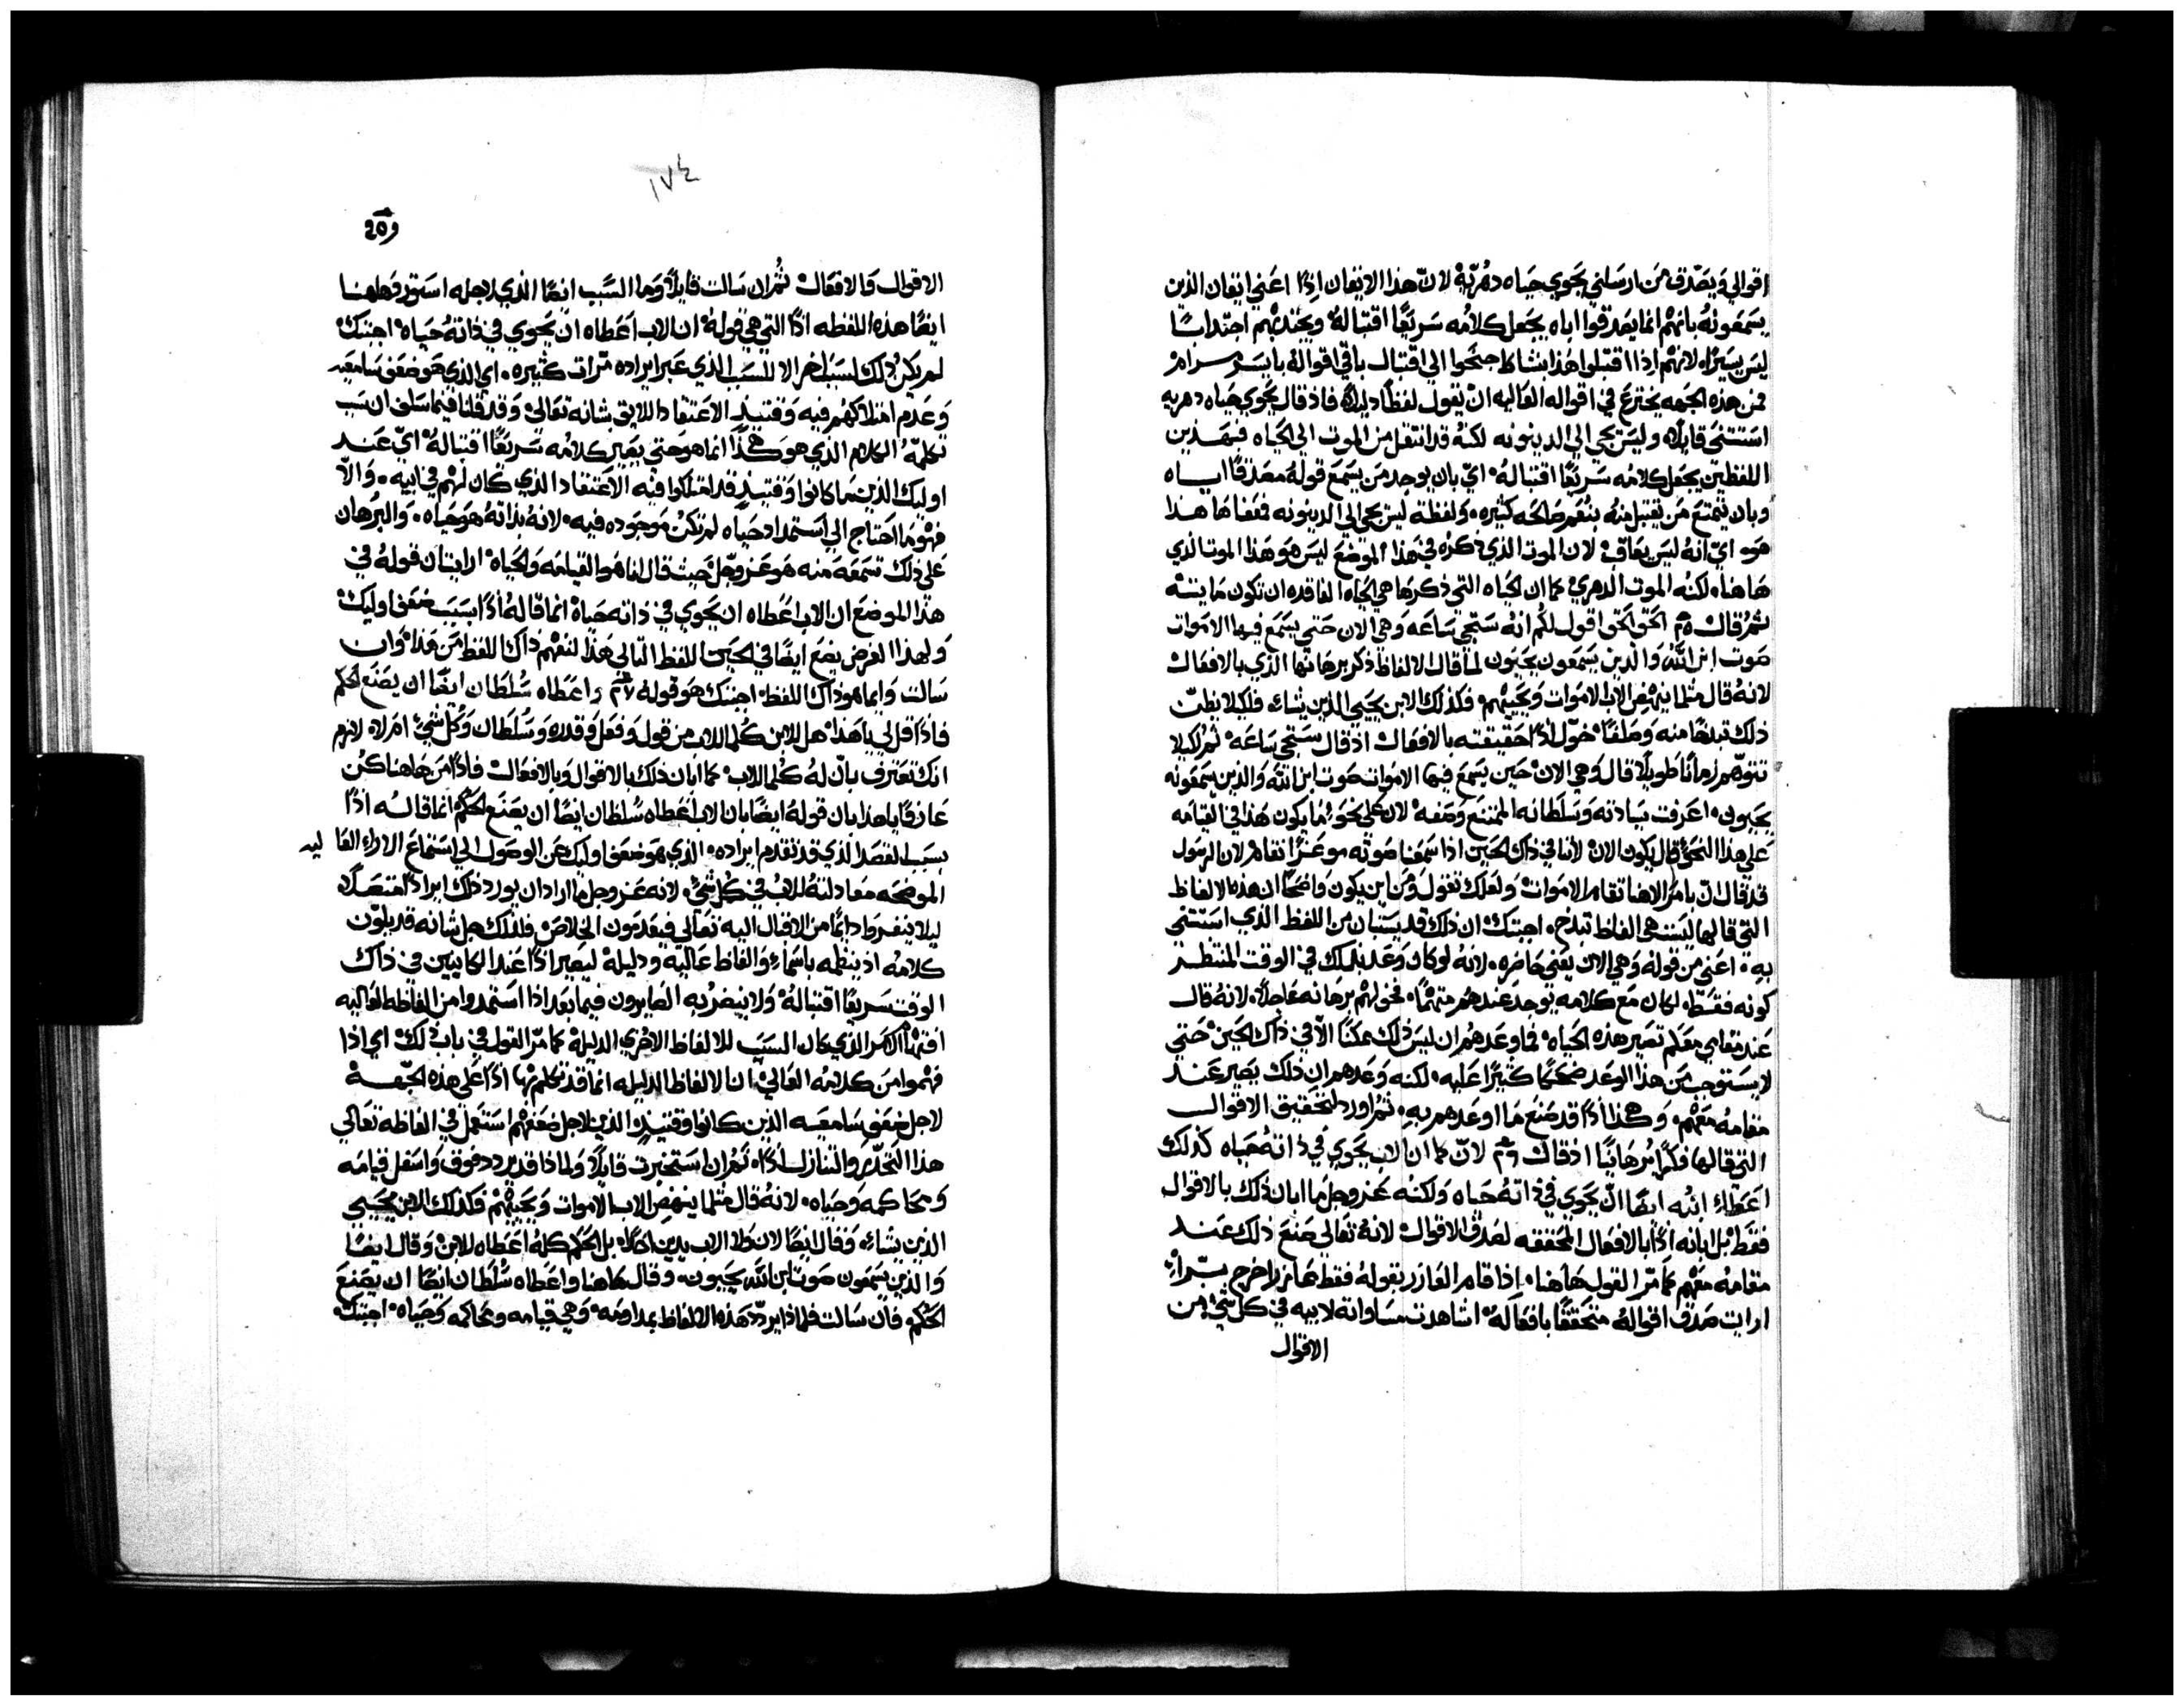 اقوالي ويصدق من ارسلني يحوي حياه دهريّة لانّ هذا الايقان اذًا اعني ايقان الذين
يسمعونه بانهم انما يصدقوا اياه يجعل كلامه سريعًا اقتباله ويجتذبهم اجتدابًا
ليس يسيرًا، لانهم اذا اقتبلوا هذا بنشاط جنحوا الي اقتبال باقي اقواله بايسر مرام
فمن هذه الجهه يخترع في اقواله العاليه ان يقول لفظًا دليلا، فاذ قال يحوي حياه دهريه
استثني قايلا، وليس يجي الي الدينونه لكنه قد انتقل من الموت الي الحياه فبهذين
اللفظين يجعل كلامه سريعًا اقتباله، اي بان يوجد من يسمع قوله مصدقًا اياه
وبان يتمتع من يقتبل منه بنعم صالحه كثيره، ولفظة ليس يجي الي الدينونه فمعناها هذا
هو، اي انه ليس يعاقب، لان الموت الذي ذكره في هذا الموضع ليس هو هذا الموت الذي
هاهنا، لكنه الموت الدهري، كما ان الحياه التي ذكرها هي الحياه الفاقده ان تكون مايته
ثم قال الحق الحق اقول لكم انه ستجي ساعه وهي الان حتي يسمع فيها الاموات
صوت ابن اللّه والذين يسمعون يحيون لما قال الالفاظ ذكر برهانها الذي بالافعال
لانه قال مثلما ينهض الاب الاموات ويحييهم، فكذلك الابن يحيي الذين يشاء، فلكيلا يظنّ
ذلك تبدخًا منه وصلفًا، خوّل اذًا حقيقته بالافعال اذ قال ستجي ساعه، ثم لكيلا
تتوهم زمانًا طويلا، قال وهي الان، حين يسمع فيها الاموات صوت ابن اللّه والذين يسمعونه
يحيون، اعرفت سيادته وسلطانه الممتنع وصفه، لان علي نحو ما يكون هذا في القيامه
علي هذا النحو قال يكون الان، لاننا في ذاك الحين اذا سمعنا صوته موعزًا نقام، لان الرسول
قد قال انّ بامر الاهنا تقام الاموات، ولعلك تقول ومن اين يكون واضحًا ان هذه الالفاظ
التي قالها ليست هي الفاظ تبدخ، اجبتك، ان ذلك قد يستبان من اللفظ الذي استثني
به، اعني من قوله وهي الان يعني حاضره، لانه لو كان وعد بذلك في الوقت المنتظر
كونه فقط، لكان مع كلامه يوجد عندهم متهمًا، فخولهم برهانه عاجلا، لانه قال
عند مقامي معكم تصير هذه الحياه، فما وعدهم ان ليس ذلك ممكنًا الّا في ذاك الحين، حتي
لا يستوجب من هذا الوعد ضحكًا كثيرًا عليه، لكنه وعدهم ان ذلك يصير عند
مقامه معهم، وهكذا اذًا قد صنع ما اوعدهم به، ثم اورد لتحقيق الاقوال
التي قالها فكرًا برهانيًا اذ قال لانّ كما ان الاب يحوي في ذاته حياه كذلك
اعطي ابنه ايضًا انّ يحوي في ذاته حياه ولكنه عز وجل ما ابان ذلك بالاقوال
فقط، بل ابانه اذًا بالافعال المحققه لصدق الاقوال، لانه تعالي صنع ذلك عند
مقامه معهم كما مرّ القول هاهنا، اذا قام العازر بقوله فقط عازر اخرج برًا،
ارايت صدق اقواله متحققًا بافعاله، اشاهدت مساواته لابيه في كل شي من
الاقوال
١٧٤
الاقوال والافعال، ثم ان سالت قايلا، وما السّبب ايضًا الذي لاجله استورد هاهنا
ايضًا هذه اللفظه اذًا التي هي قوله، ان الاب اعطاه ان يحوي في ذاته حياه، اجبتك
لم يكن ذلك لسبب اخر الا للسبب الذي عبر ايراده مرات كثيره، اي الذي هو ضعف سامعيه
وعدم امتلاكهم فيه وقتيذٍ الاعتقاد اللايق بشانه تعالي، وقد قلنا فيما سلف ان سبب
تكلمّه الكلام الذي هو هكذا انما هو حتي يصير كلامه سريعًا اقتباله، ايّ عند
اوليك الذين ما كانوا وقتيذٍ قد امتلكوا فيه الاعتقاد الذي كان لهم في ابيه، والّا
فهو ما احتاج الي استمداد حياه لم تكن موجوده فيه، لانه بذاته هو حياه، والبرهان
علي ذلك تسمعه منه هو عز وجل حيث قال انا هو القيامه والحياه، ارايت ان قوله في
هذا الموضع ان الاب اعطاه ان يحوي في ذاته حياة انما قاله اذًا بسبب ضعف اوليك
ولهذا الغرض يضع ايضًا في الحين اللفظ التالي هذا لنفهم ذاك اللفظ من هذا، وان
سالت وايما هو ذاك اللفظ، اجبتك هو قوله واعطاه سُلطان ايضًا ان يصنع الحكم
فاذًا قل لي يا هذا، هل للابن كُلما للاب من قول وفعل وقدره وسُلطان وكل شي، ام لا، لانهم
انك تعترف بانّ له كُلما للاب، كما ابان ذلك بالاقوال وبالافعال، فاذًا من هاهنا كن
عارفًا يا هذا بان قوله ايضًا بان الاب اعطاه سُلطان ايضًا ان يصنع الحكم انما قاله اذًا
بسبب القصد الذي قد تقدم ايراده، الذي هو ضعف اوليك عن الوصول الي استماع الاراء العاليه
الموضحه معادلته للاب في كل شي، لانه عز وجل ما اراد ان يورد ذلك ايرادًا متصلًا
ليلا ينفروا دايمًا من الاقبال اليه تعالي فيعدمون الخلاص، فلذلك جل شانه قد يلوّن
كلامه اذ ينظمه باسماء والفاظ عاليه ودليله ليصير اذًا عند الكاينين في ذاك
الوقت سريعًا اقتباله، ولا ينضر به الصايرون فيما بعد اذا استمدوا من الفاظه العاليه
افتهام الامر الذي كان السبب للالفاظ الاخري الدليله كما مرّ القول في باب ذلك، اي اذا
فهموا من كلامه العالي، ان الالفاظ الدليله انما قد تكلم بها اذًا علي هذه الجّهة
لاجل ضعف سامعيه الذين كانوا وقتيذٍ، الذين لاجل ضعفهم استعمل في الفاظه تعالي
هذا التحدّر والتنازل اذًا، ثم ان استخبرت قايلا، ولماذا قد يردد فوق واسفل قيامه
ومحاكمه وحياه، لانه قال مثلما ينهض الاب الاموات ويحييهم، فكذلك الابن يحيي
الذين يشاء، وقال ايضًا لان ولا الاب يدين احدًا، بل الحكم كله اعطاه للابن، وقال ايضًا
والذين يسمعون صوت ابن اللّه يحيون، وقال هاهنا واعطاه سُلطان ايضًا ان يصنع
الحكم، فان سالت فلماذا يردّد هذه الالفاظ بمداومه، وهي قيامه ومحاكمه وحياه، اجبتك